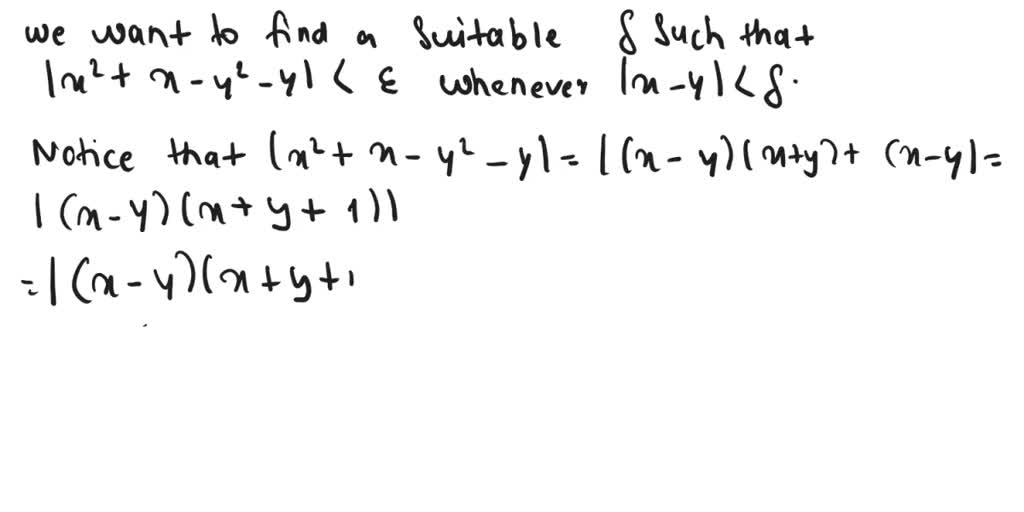 we want to find a suitable δ such that
|x² + x - y² - y| < ε whenever |x - y| < δ.
Notice that |x² + x - y² - y| = |(x - y)(x+y) + (x-y| =
|(x-y)(x + y + 1)|
= |(x - y)(x + y + 1